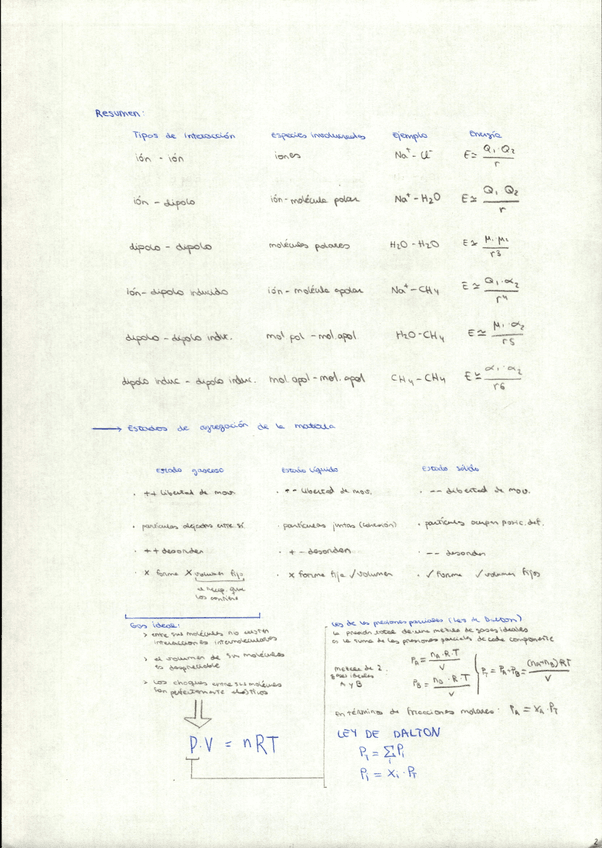 Resumen:
Tipos de interacción Especies involucradas Ejemplo Energía
ión - ión iones Na⁺ - Cl⁻ E ≃ Q₁ · Q₂ / r
ión - dipolo ión - molécula polar Na⁺ - H₂O E ≃ Q₁ Q₂ / r
dipolo - dipolo moléculas polares H₂O - H₂O E ≃ μ₁ μ₁ / r3
ión - dipolo inducido ión - molécula apolar Na⁺ - CH₄ E ≃ Q₁ · α₂ / r4
dipolo - dipolo induc. mol pol - mol. apol H₂O - CH₄ E ≃ μ₁ · α₂ / r5
dipolo induc - dipolo induc. mol. apol - mol. apol CH₄ - CH₄ E ≃ α₁ · α₂ / r6
→ Estados de agregación de la materia
Estado gaseoso Estado líquido Estado sólido
· ++ libertad de mov. · +- libertad de mov. · -- libertad de mov.
· partículas alejadas entre sí · partículas juntas · partículas ocupan posic. det.
· ++ desorden · +- desorden · -- desorden
· x forma x volumen fijo · x forma fija ✓ volumen · ✓ forma ✓ volumen fijos
el recip. que
los contiene
Gas ideal:
> entre sus moléculas no existen
interacciones intermoleculares
> el volumen de sus moléculas
es despreciable
> Los choques entre sus moléculas
son perfectamente elásticos
P·V = nRT
Ley de las presiones parciales (Ley de Dalton)
la presión total de una mezcla de gases ideales
es la suma de las presiones parciales de cada componente
mezcla de 2
gases ideales
A y B
P_A = n_A · R · T / V
P_B = n_B · R · T / V
P_T = P_A + P_B = (n_A + n_B) RT / V
en términos de fracciones molares: P_A = X_A · P_T
LEY DE DALTON
P_T = Σ_i P_i
P_i = X_i · P_T
2